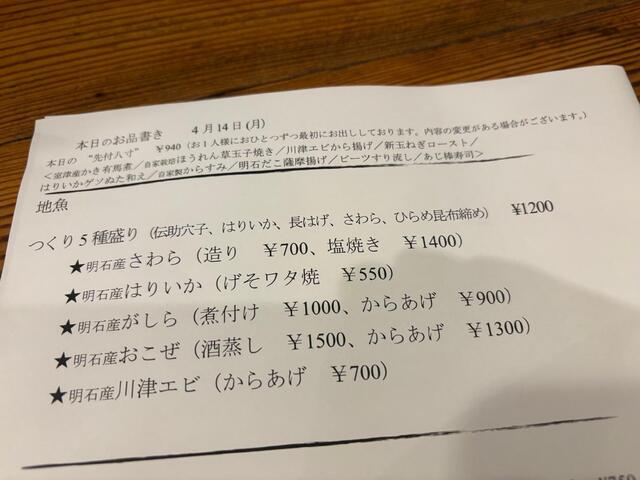 本日のお品書き　4月14日(月)
本日の“先付八寸”　￥940（お1人様におひとつずつ最初にお出ししております。内容の変更がある場合がございます。）
＜室津産かき有馬煮／自家栽培ほうれん草玉子焼き／川津エビから揚げ／新玉ねぎロースト／
はりいかゲソぬた和え／自家製からすみ／明石だこ薩摩揚げ／ビーツすり流し／あじ棒寿司＞
地魚
つくり5種盛り（伝助穴子、はりいか、長はげ、さわら、ひらめ昆布締め）　￥1200
★明石産さわら（造り　￥700、塩焼き　￥1400）
★明石産はりいか（げそワタ焼　￥550）
★明石産がしら（煮付け　￥1000、からあげ　￥900）
★明石産おこぜ（酒蒸し　￥1500、からあげ　￥1300）
★明石産川津エビ（からあげ　￥700）